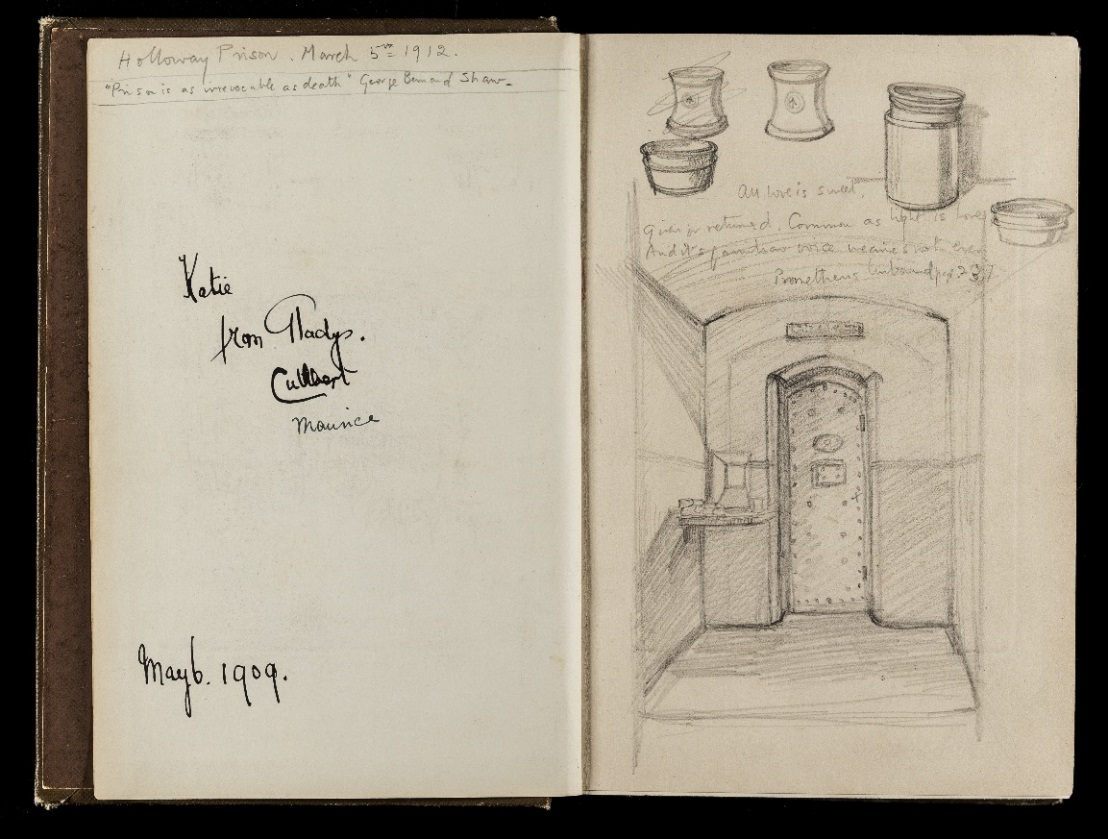 Holloway Prison. March 5th 1912.
"Prison is as irrevocable as death" George Bernard Shaw -
Katie
from Gladys.
Cuthbert
Maurice
May 6. 1909.
All love is sweet,
Given or returned. Common as light is love
And it's familiar voice wearies not ever
Prometheus Unbound page 237